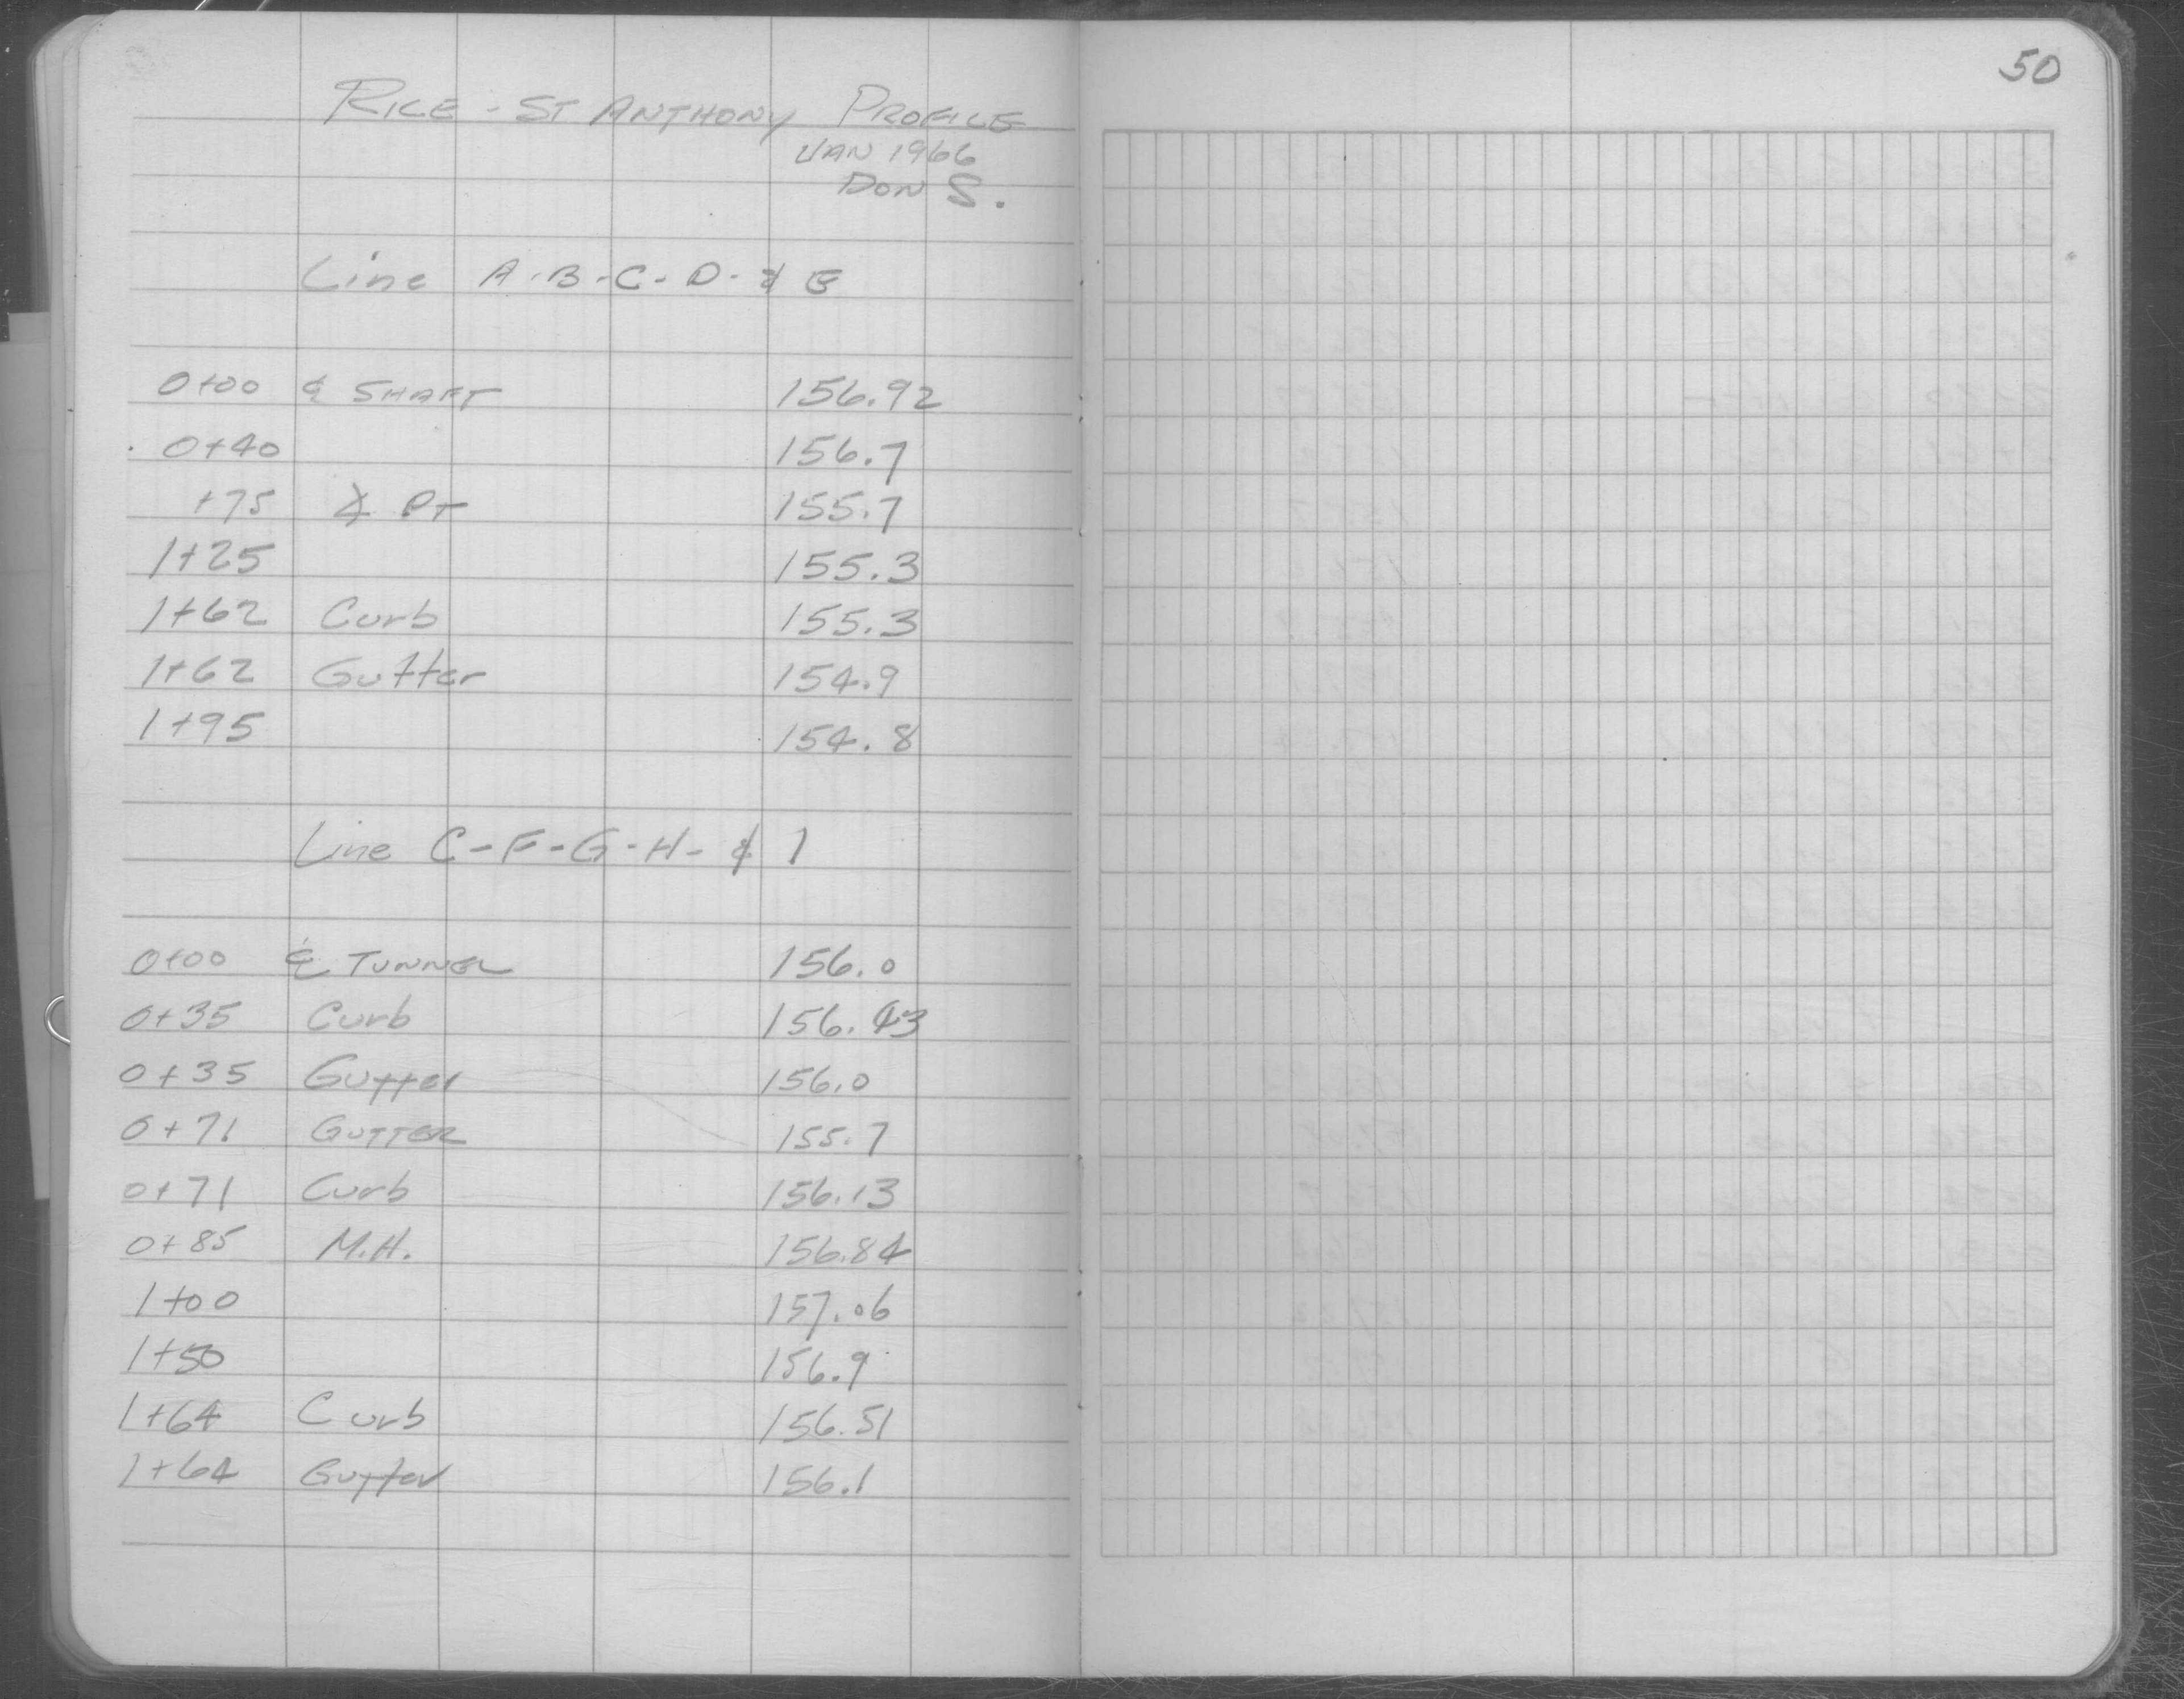 50
RICE - ST ANTHONY PROFILE
JAN 1966
DON S.
Line A-B-C-D-& E
0+00 ℄ SHAFT 156.92
0+40 156.7
+75 ∡ PT 155.7
1+25 155.3
1+62 Curb 155.3
1+62 Gutter 154.9
1+95 154.8
Line C-F-G-H-& I
0+00 ℄ TUNNEL 156.0
0+35 Curb 156.43
0+35 Gutter 156.0
0+71 GUTTER 155.7
0+71 Curb 156.13
0+85 M.H. 156.84
1+00 157.06
1+50 156.9
1+64 Curb 156.51
1+64 Gutter 156.1